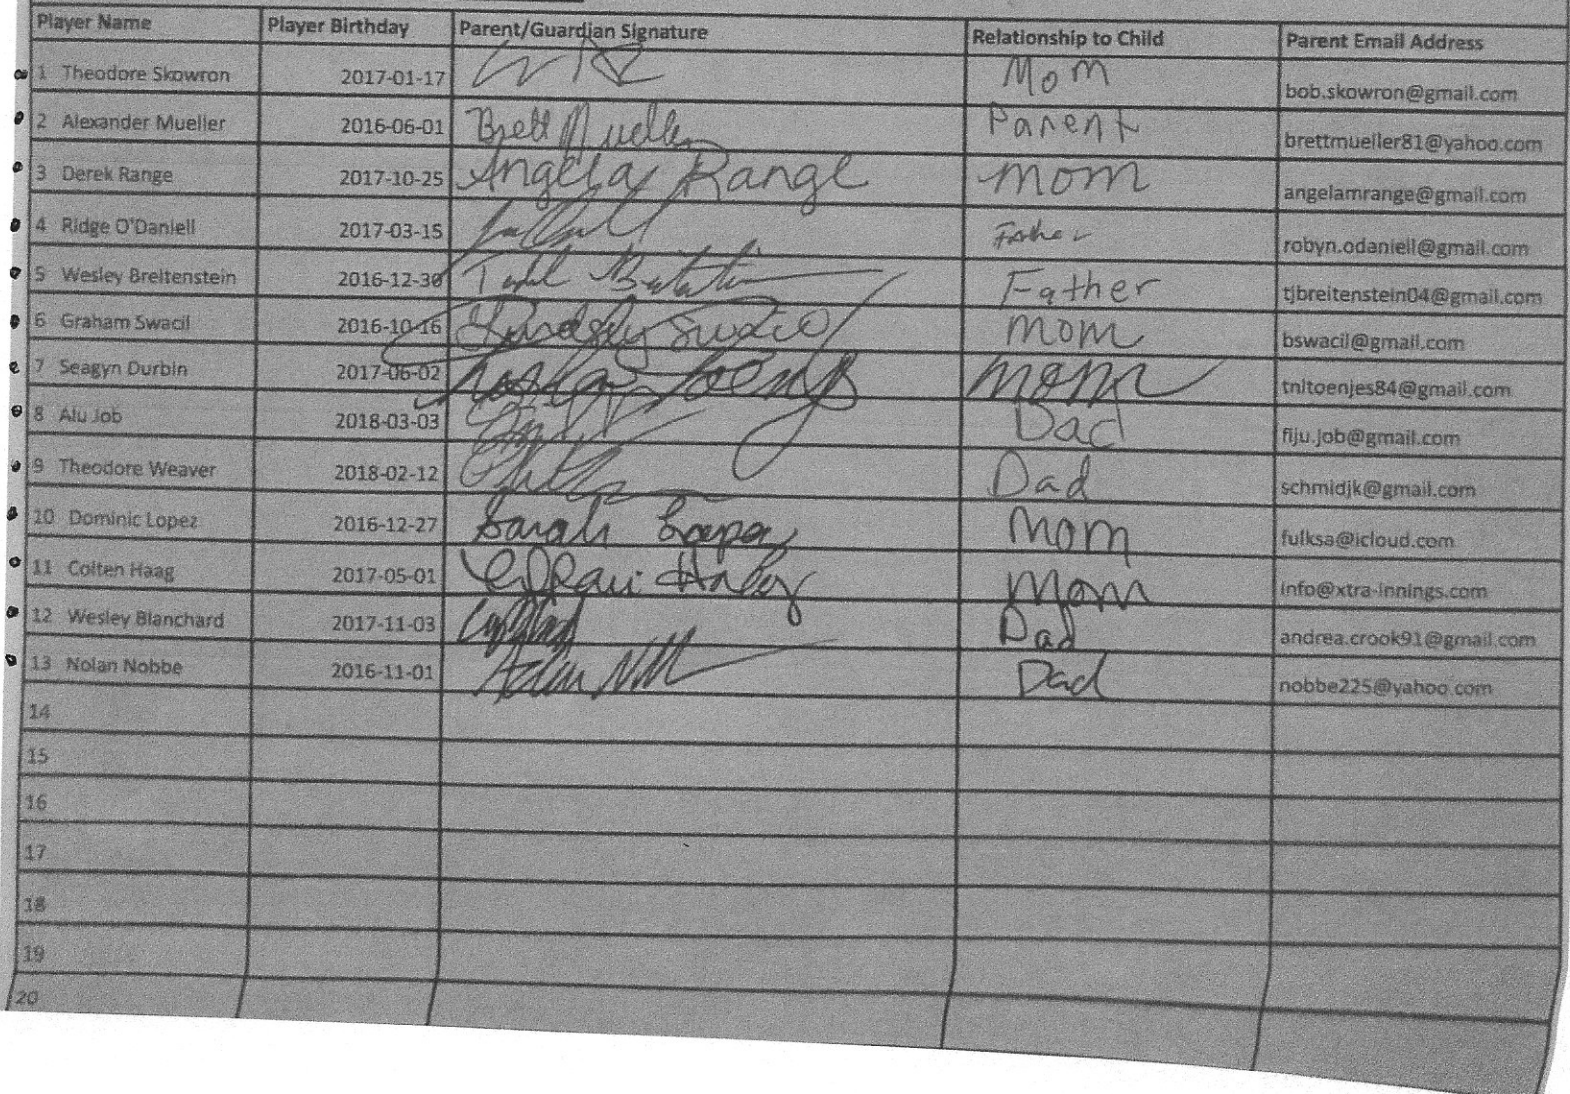 Player Name Player Birthday Parent/Guardian Signature Relationship to Child Parent Email Address
1 Theodore Skowron 2017-01-17 Mom bob.skowron@gmail.com
2 Alexander Mueller 2016-06-01 Brett Mueller Parent brettmueller81@yahoo.com
3 Derek Range 2017-10-25 Angela Range Mom angelamrange@gmail.com
4 Ridge O'Daniell 2017-03-15 Father robyn.odaniell@gmail.com
5 Wesley Breitenstein 2016-12-30 Father tjbreitenstein04@gmail.com
6 Graham Swacil 2016-10-16 Lindsey Swacil Mom bswacil@gmail.com
7 Seagyn Durbin 2017-06-02 mom tnltoenjes84@gmail.com
8 Alu Job 2018-03-03 Dad fiju.job@gmail.com
9 Theodore Weaver 2018-02-12 Dad schmidjk@gmail.com
10 Dominic Lopez 2016-12-27 Sarah Lopez Mom fulksa@icloud.com
11 Colten Haag 2017-05-01 Mom info@xtra-innings.com
12 Wesley Blanchard 2017-11-03 Dad andrea.crook91@gmail.com
13 Nolan Nobbe 2016-11-01 Dad nobbe225@yahoo.com
14
15
16
17
18
19
20